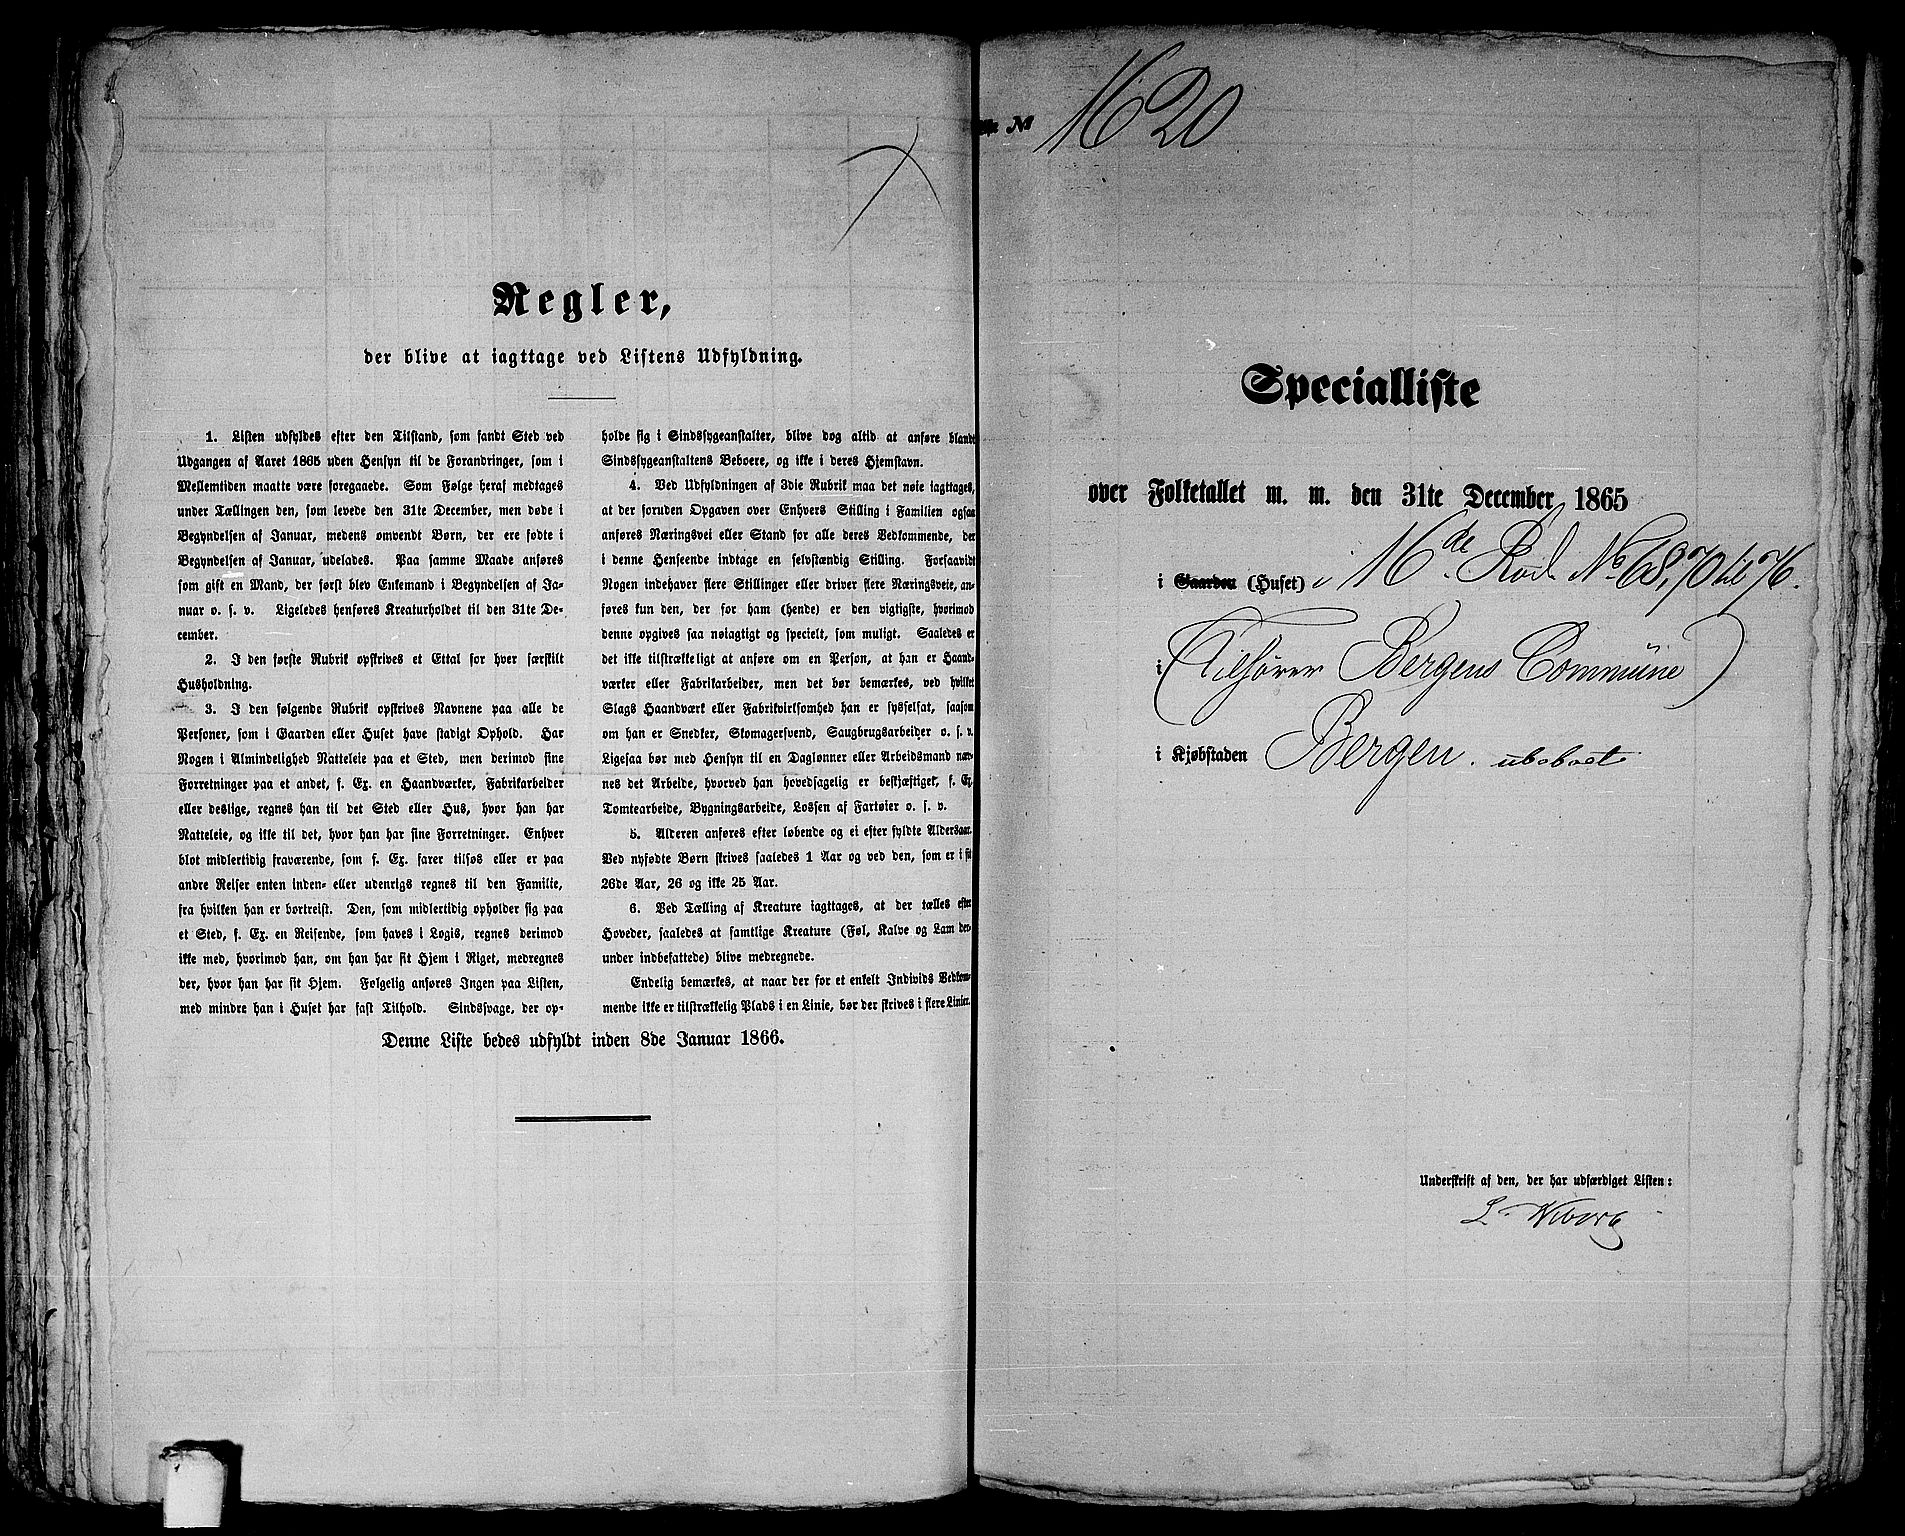 Regler,
der blive at iagttage ved Listens Udfyldning.
1. Listen udfyldes efter den Tilstand, som fandt Sted ved
Udgangen af Aaret 1865 uden Hensyn til de Forandringer, som i
Mellemtiden maatte være foregaaede. Som Følge heraf medtages
under Tællingen den, som levede den 31te December, men døde i
Begyndelsen af Januar, medens omvendt Børn, der ere fødte i
Begyndelsen af Januar, udelades. Paa samme Maade anføres
som gift en Mand, der først blev Enkemand i Begyndelsen af Ja-
nuar o. s. v. Ligeledes henføres Kreaturholdet til den 31te De-
cember.
2. I den første Rubrik opskrives et Ettal for hver særskilt
Husholdning.
3. I den følgende Rubrik opskrives Navnene paa alle de
Personer, som i Gaarden eller Huset have stadigt Ophold. Har
Nogen i Almindelighed Natteleie paa et Sted, men derimod sine
Forretninger paa et andet, f. Ex. en Haandværker, Fabrikarbeider
eller deslige, regnes han til det Sted eller Hus, hvor han har
Natteleie, og ikke til det, hvor han har sine Forretninger. Enhver
blot midlertidig fraværende, som f. Ex. farer tilsøs eller er paa
andre Reiser enten inden- eller udenrigs regnes til den Familie,
fra hvilken han er bortreist. Den, som midlertidig opholder sig paa
et Sted, f. Ex. en Reisende, som haves i Logis, regnes derimod
ikke med, hvorimod han, om han har sit Hjem i Riget, medregnes
der, hvor han har sit Hjem. Følgelig anføres Ingen paa Listen,
med mindre han i Huset har fast Tilhold. Sindssvage, der op-
holde sig i Sindssygeanstalter, blive dog altid at anføre blandt
Sindssygeanstaltens Beboere, og ikke i deres Hjemstavn.
4. Ved Udfyldningen af 3die Rubrik maa det nøie iagttages,
at der foruden Opgaven over Enhvers Stilling i Familien ogsaa
anføres Næringsvei eller Stand for alle deres Vedkommende, der
i denne Henseende indtage en selvstændig Stilling. Forsaavidt
Nogen indehaver flere Stillinger eller driver flere Næringsveie, an-
føres kun den, der for ham (hende) er den vigtigste, hvorimod
denne opgives saa nøiagtigt og specielt, som muligt. Saaledes er
det ikke tilstrækkeligt at anføre om en Person, at han er Haand-
værker eller Fabrikarbeider, men det bør bemærkes, ved hvilket
Slags Haandværk eller Fabrikvirksomhed han er sysselsat, saasom
om han er Snedker, Skomagersvend, Saugbrugsarbeider o. s. v.
Ligesaa bør med Hensyn til en Daglønner eller Arbeidsmand næv-
nes det Arbeide, hvorved han hovedsagelig er beskjæftiget, f. Ex.
Tomtearbeide, Bygningsarbeide, Lossen af Fartøier o. s. v.
5. Alderen anføres efter løbende og ei efter fyldte Aldersaar.
Ved nyfødte Børn skrives saaledes 1 Aar og ved den, som er i sit
26de Aar, 26 og ikke 25 Aar.
6. Ved Tælling af Kreature iagttages, at der tælles efter
Hoveder, saaledes at samtlige Kreature (Føl, Kalve og Lam der-
under indbefattede) blive medregnede.
Endelig bemærkes, at naar der for et enkelt Individs Vedkom-
mende ikke er tilstrækkelig Plads i en Linie, bør der skrives i flere Linier.
Denne Liste bedes udfyldt inden 8de Januar 1866.
No 1620
Specialliste
over Folketallet m. m. den 31te December 1865
i Gaarden (Huset) i 16de Rode No 68, 70 til 76.
i (Tilhører Bergens Commune)
i Kjøbstaden Bergen. ubeboet
Underskrift af den, der har udfærdiget Listen:
L. Wiborg